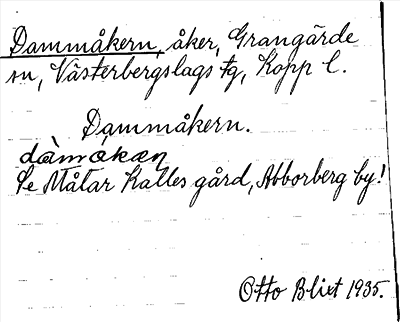 Dammåkern, åker, Grangärde
sn, Västerbergslags tg, Kopp l.
Dammåkern.
dàmåkan
Se Målar Kalles gård, Abborberg by!
Otto Blixt 1935.